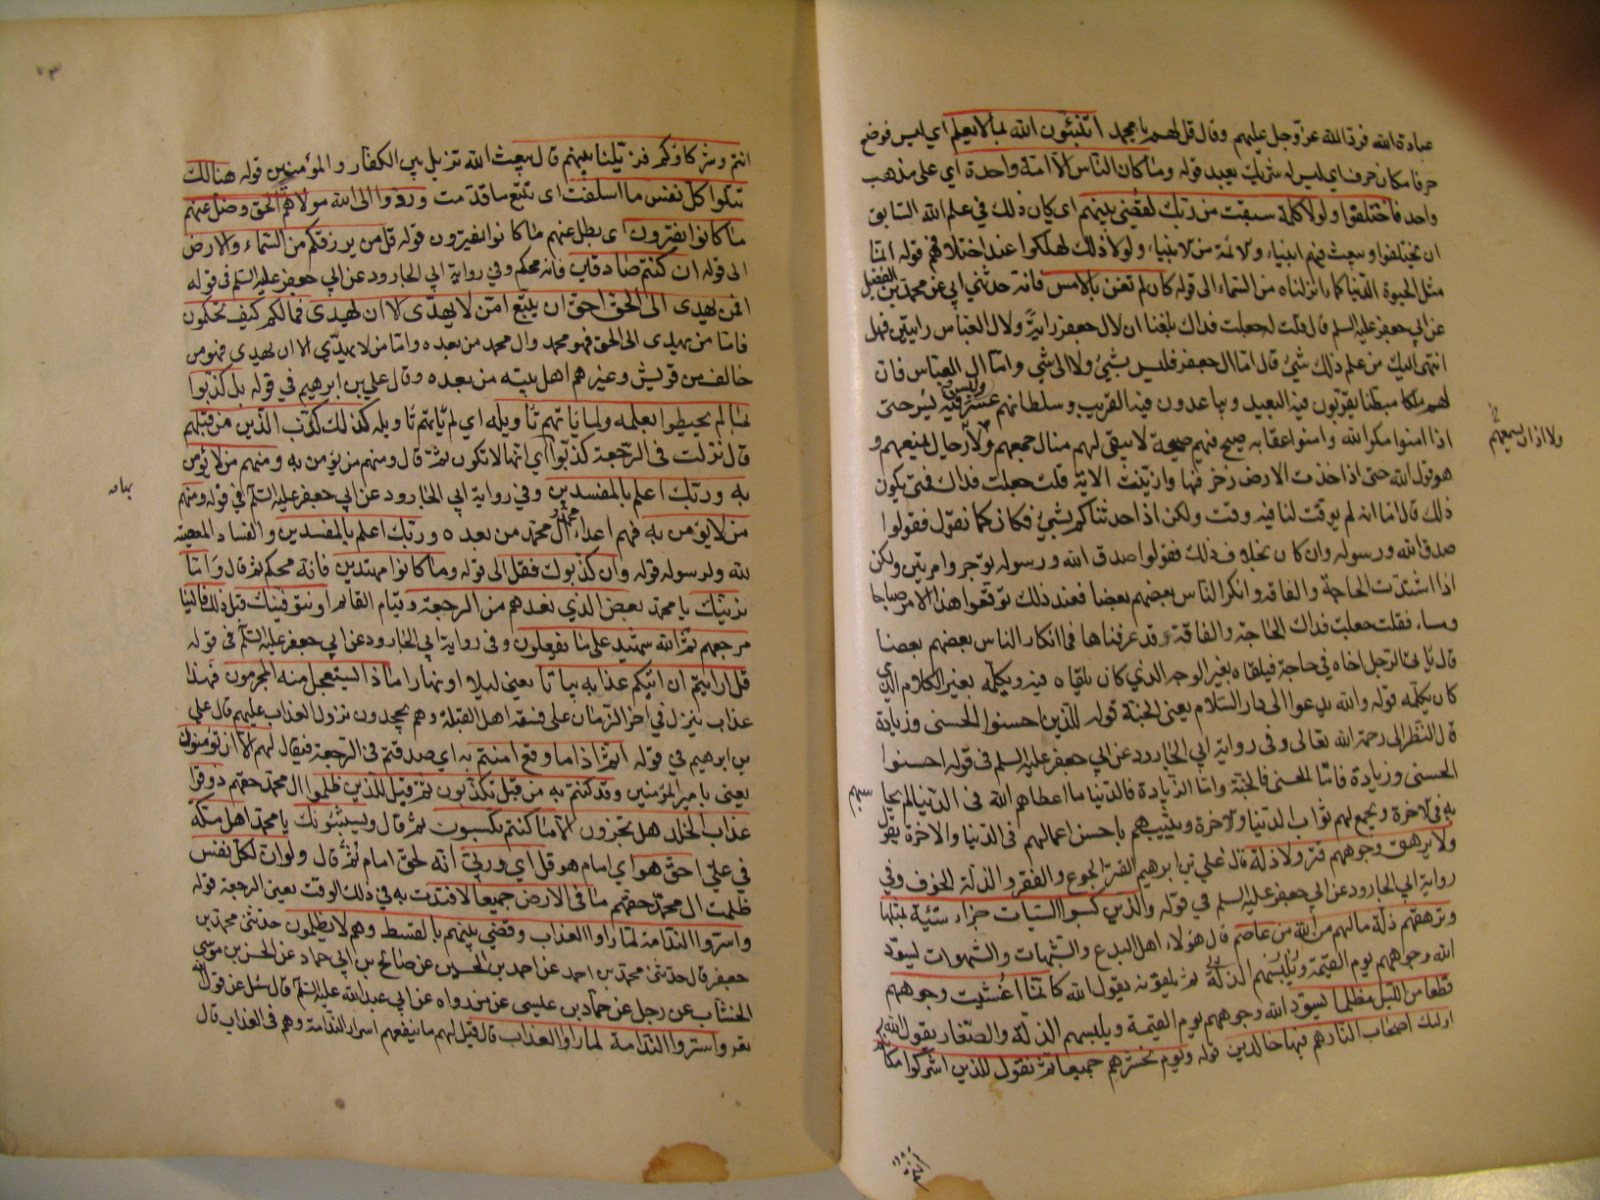 عبادة الله فرد الله عز وجل عليهم وقال قل لهم يا محمد اتنبئون الله بما لا يعلم اي ليس فوضع
حرفا مكان حرف اي ليس له شريك يعبد قوله وما كان الناس الا امة واحدة اي على مذهب
واحد فاختلفوا ولولا كلمة سبقت من ربك لقضى بينهم اي كان ذلك في علم الله السابق
ان يختلفوا ويبعث فيهم انبياء ولائمة من لانبياء ولولا ذلك لهلكوا عند اختلافهم قوله انما
مثل الحيوة الدنيا كماء انزلناه من السماء الى قوله كان لم تغن بالامس فانه حدثني ابي عن محمد بن الفضيل
عن ابي جعفر عليه السلم قال قلت له جعلت فداك بلغنا ان لال جعفر راية ولال العباس رايتين فهل
انتهى اليك من علم ذلك شئ قال اما ال جعفر فليس بشئ ولا الى شئ واما ال العباس فان
لهم ملكا مبطئا يقربون فيه البعيد ويباعدون فيه القريب وسلطانهم عسر وليس فيه يسر حتى
اذا امنوا مكر الله وامنوا عقابه صيح فيهم صيحة لا يبقى لهم منال جمعهم ولا رجال يمنعهم و
ولا اذان يسمعهم
هو قول الله حتى اذا اخذت الارض زخرفها وازينت الاية قلت جعلت فداك فمتى يكون
ذلك قال اما انه لم يوقت لنا فيه وقت ولكن اذا حدثناكم بشئ فكان كما نقول فقولوا
صدق الله ورسوله وان كان بخلاف ذلك فقولوا صدق الله ورسوله توجروا مرتين ولكن
اذا اشتدت الحاجة والفاقة وانكر الناس بعضهم بعضا فعند ذلك توقعوا هذا الامر صباحا
ومساء فقلت جعلت فداك الحاجة والفاقة قد عرفناها فما انكار الناس بعضهم بعضا
قال ياتي الرجل اخاه في حاجة فيلقاه بغير الوجه الذي كان يلقاه فيه ويكلمه بغير الكلام الذي
كان يكلمه قوله والله يدعوا الى دار السلام يعني الجنة قوله للذين احسنوا الحسنى وزيادة
قال النظر الى رحمة الله تعالى وفي رواية ابي الجارود عن ابي جعفر عليه السلم في قوله احسنوا
الحسنى وزيادة فاما الحسنى فالجنة واما الزيادة فالدنيا ما اعطاهم الله في الدنيا لم يحاسبهم
به في لاخرة ويجمع لهم ثواب الدنيا ولاخرة ويثيبهم باحسن اعمالهم في الدنيا والاخرة يقول
ولا يرهق وجوههم قتر ولا ذلة قال علي بن ابرهيم القتر الجوع والفقر والذلة الخوف وفي
رواية ابي الجارود عن ابي جعفر عليه السلم في قوله والذين كسبوا السيات جزاء سيئة بمثلها
وترهقهم ذلة مالهم من الله من عاصم قال هؤلاء اهل البدع والشبهات والشهوات يسود
الله وجوههم يوم القيمة ويلبسهم الذلة ثم يلقونه يقول الله كانما اغشيت وجوههم
قطعا من الليل مظلما يسود الله وجوههم يوم القيمة ويلبسهم الذلة والصغار يقول الله
اولئك اصحاب النار هم فيها خالدين قوله ويوم نحشرهم جميعا ثم نقول للذين اشركوا مكانكم
انتم وشركاؤكم فزيلنا بينهم قال يبعث الله تزيل بين الكفار والمؤمنين قوله هنالك
تبلوا كل نفس ما اسلفت اي تتبع ما قدمت وردوا الى الله مولاهم الحق وضل عنهم
ما كانوا يفترون اي بطل عنهم ما كانوا يفترون قوله قل من يرزقكم من السماء والارض
الى قوله ان كنتم صادقين فانه محكم وفي رواية ابي الجارود عن ابي جعفر عليه السلم في قوله
افمن يهدي الى الحق احق ان يتبع امن لا يهدي لا ان يهدى فمالكم كيف تحكمون
فاما من يهدي الى الحق فهو محمد وال محمد من بعده واما من لا يهدي الا ان يهدى فهو من
خالف من قريش وغيرهم اهل بيته من بعده وقال علي بن ابرهيم في قوله بل كذبوا
بما لم يحيطوا بعلمه ولما ياتهم تاويله اي لم ياتهم تاويله كذلك كذب الذين من قبلهم
قال نزلت في الرجعة كذبوا اي انها لا تكون ثم قال ومنهم من يؤمن به ومنهم من لا يؤمن
به وربك اعلم بالمفسدين وفي رواية ابي الجارود عن ابي جعفر عليه السلم في قوله ومنهم
من لا يؤمن به فهم اعداء محمد وال محمد من بعده وربك اعلم بالمفسدين والفساد المعصية
لله ولرسوله قوله وان كذبوك فقل الى قوله وما كانوا مهتدين فانه محكم ثم قال واما
نرينك يا محمد بعض الذي نعدهم من الرجعة وقيام القائم او نتوفينك قبل ذلك فالينا
مرجعهم ثم الله شهيد على ما يفعلون وفي رواية ابي الجارود عن ابي جعفر عليه السلم في قوله
قل ارايتم ان اتيكم عذابه بياتا يعني ليلا او نهارا ماذا يستعجل منه المجرمون فهذا
عذاب ينزل في اخر الزمان على فسقة اهل القبلة وهم يجحدون نزول العذاب عليهم قال علي
بن ابرهيم في قوله اثم اذا ما وقع امنتم به اي صدقتم في الرجعة فيقال لهم الان تومنون
يعني بامير المؤمنين وقد كنتم به من قبل تكذبون ثم قيل للذين ظلموا ال محمد حقهم ذوقوا
عذاب الخلد هل تجزون الا ما كنتم تكسبون ثم قال ويستنبئونك يا محمد اهل مكة
في علي احق هو اي امام هو قل اي وربي انه لحق امام ثم قال ولو ان لكل نفس
ظلمت ال محمد حقهم ما في الارض جميعا لافتدت به في ذلك الوقت يعني الرجعة قوله
واسروا الندامة لما راوا العذاب وقضى بينهم بالقسط وهم لا يظلمون حدثني محمد بن
جعفر قال حدثني محمد بن احمد عن احمد بن الحسين عن صالح بن ابي حماد عن الحسن بن موسى
الخشاب عن رجل عن حماد بن عيسى عن من رواه عن ابي عبد الله عليه السلم قال سئل عن قول الله
واسروا الندامة لما راوا العذاب قال قيل لهم ما ينفعهم اسرار الندامة وهم في العذاب قال